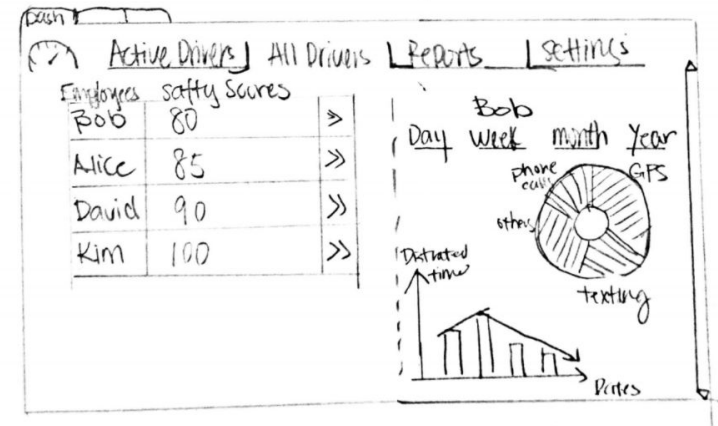 Dash
Active Drivers All Drivers Reports Settings
Employees safty Scores
Bob 80 >>
Alice 85 >>
David 90 >>
Kim 100 >>
Bob
Day week month Year
phone calls
GPS
others
texting
Distrated time
Dates